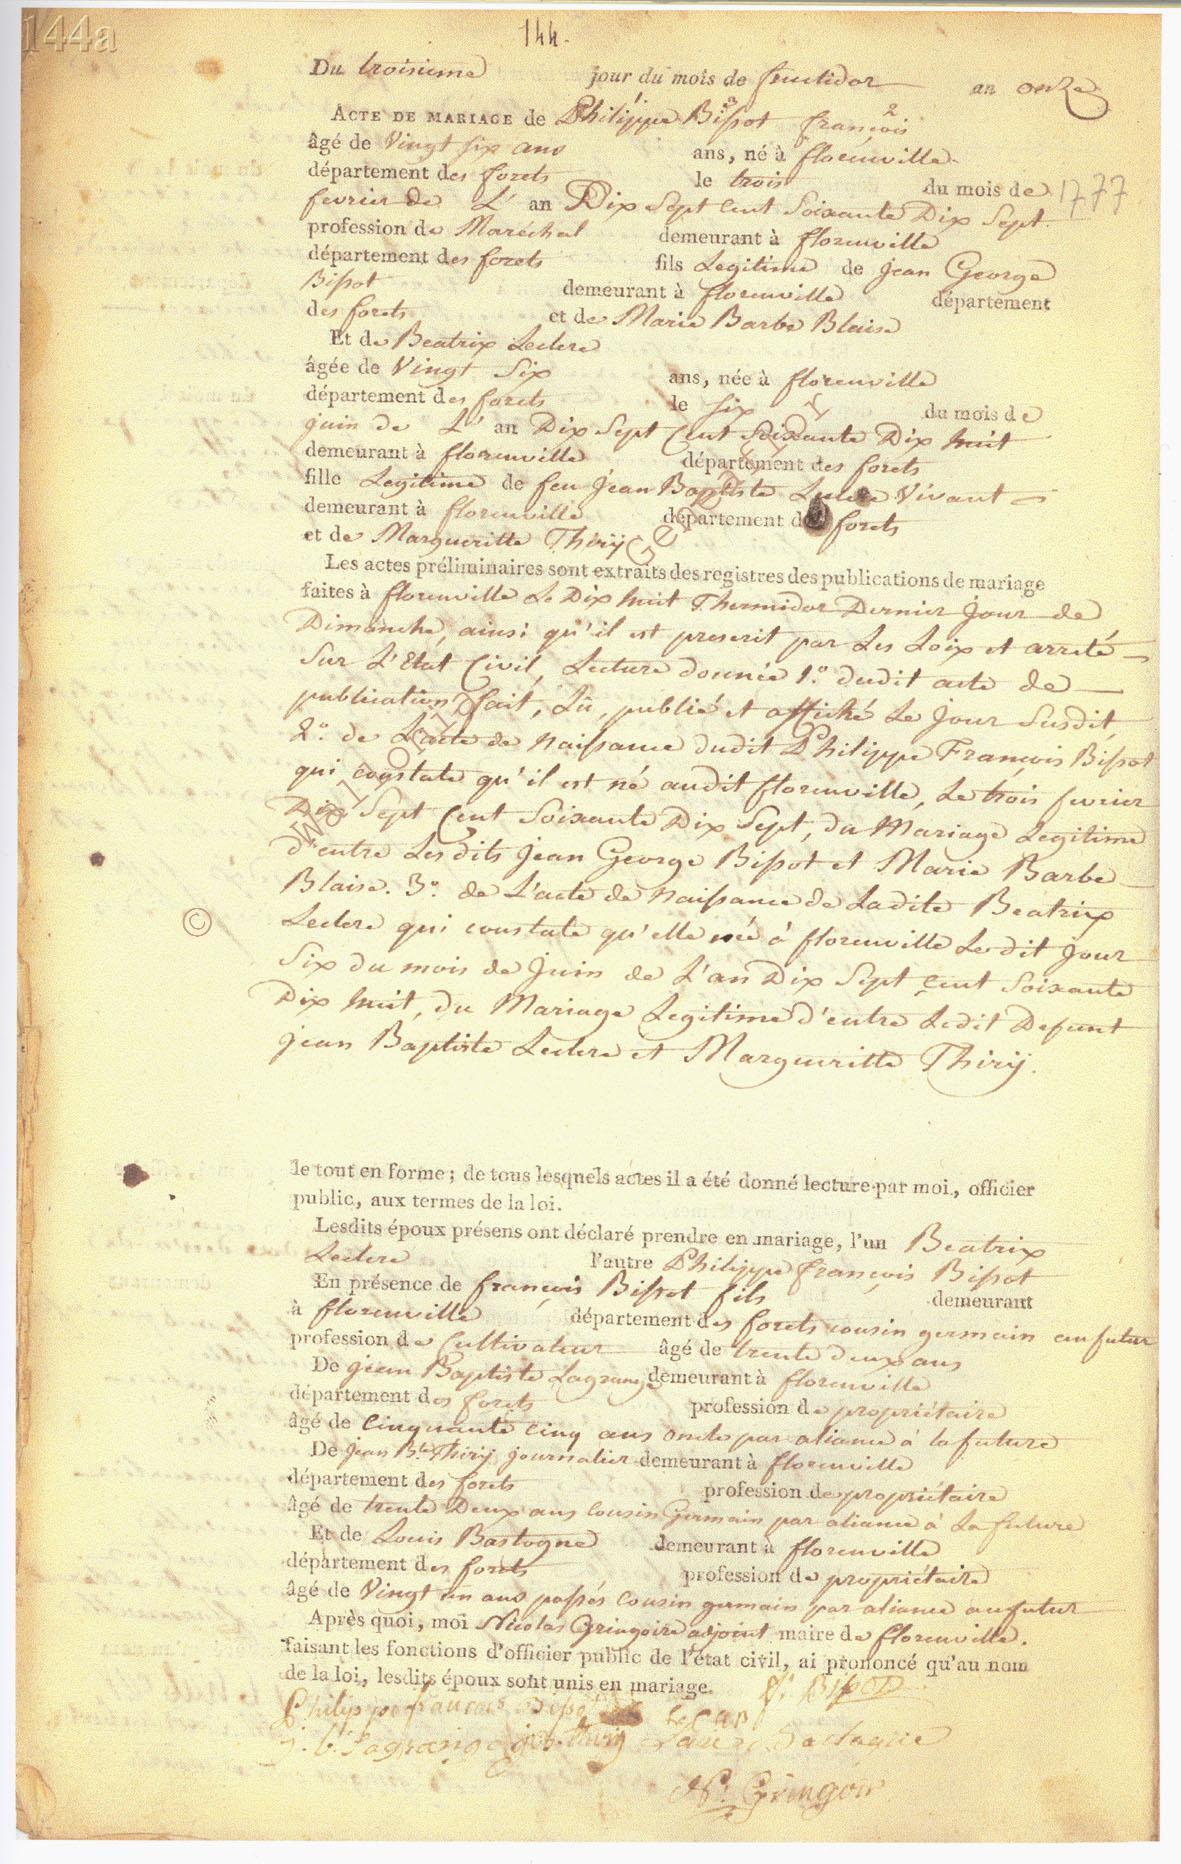 144a
144.
Du troisieme jour du mois de fructidor an onze
ACTE DE MARIAGE de Philippe Bissot françois
1 3 2
âgé de Vingt six ans ans, né à florenville
département des forets le trois du mois de 1777
fevrier de L' an Dix Sept Cent Soixante Dix Sept
profession de Maréchal demeurant à florenville
département des forets fils Legitime de jean George
Bissot demeurant à florenville département
des forets et de Marie Barbe Blaise
Et de Beatrix Leclere
âgée de Vingt Six ans, née à florenville
département des forets le six du mois de
juin de L' an Dix Sept Cent Soixante Dix huit
demeurant à florenville département des forets
fille Legitime de feu jean Baptiste Leclere Vivant
demeurant à florenville département des forets
et de Margueritte Thirÿ
Les actes préliminaires sont extraits des registres des publications de mariage
faites à florenville Le Dix huit Thermidor Dernier jour de
Dimanche, ainsi qu'il est prescrit par Les Loix et arreté
Sur L'Etat Civil, Lecture donnée 1.o dudit acte de
publication fait, Lû, publié et affiché Le jour Susdit,
2.o de L'acte de Naissance dudit Philippe François Bissot
qui constate qu'il est né audit florenville, Le trois fevrier
Dix Sept Cent Soixante Dix Sept, du Mariage Legitime
d'entre Lesdits jean George Bissot et Marie Barbe
Blaise. 3.o de L'acte de Naissance de Ladite Beatrix
©
Leclere qui constate qu'elle née à florenville Ledit jour
Six du mois de juin de L'an Dix Sept cent Soixante
Dix huit, du Mariage Legitime d'entre Ledit Defunt
jean Baptiste Leclere et Margueritte Thirÿ.
le tout en forme; de tous lesquels actes il a été donné lecture par moi, officier
public, aux termes de la loi.
Lesdits époux présens ont déclaré prendre en mariage, l'un Beatrix
Leclere l'autre Philippe françois Bissot
En présence de françois Bissot fils demeurant
à florenville département des forets cousin germain au futur
profession de Cultivateur âgé de trente deux ans
De jean Baptiste Lagrange demeurant à florenville
département des forets profession de propriétaire
âgé de Cinquante cinq ans oncle par aliance à la future
De jean B.te Thirÿ journalier demeurant à florenville
département des forets profession de propriétaire
âgé de trente Deux ans cousin Germain par aliance à La future
Et de Louis Bastogne demeurant à florenville
département des forets profession de propriétaire
âgé de Vingt un ans passés cousin germain par aliance au futur
Après quoi, moi Nicolas Gringoire adjoint maire de florenville.
faisant les fonctions d'officier public de l'état civil, ai prononcé qu'au nom
de la loi, lesdits époux sont unis en mariage.
Philippe francois f. Bissot
j. b. Lagrange Thiry
N. Gringoir